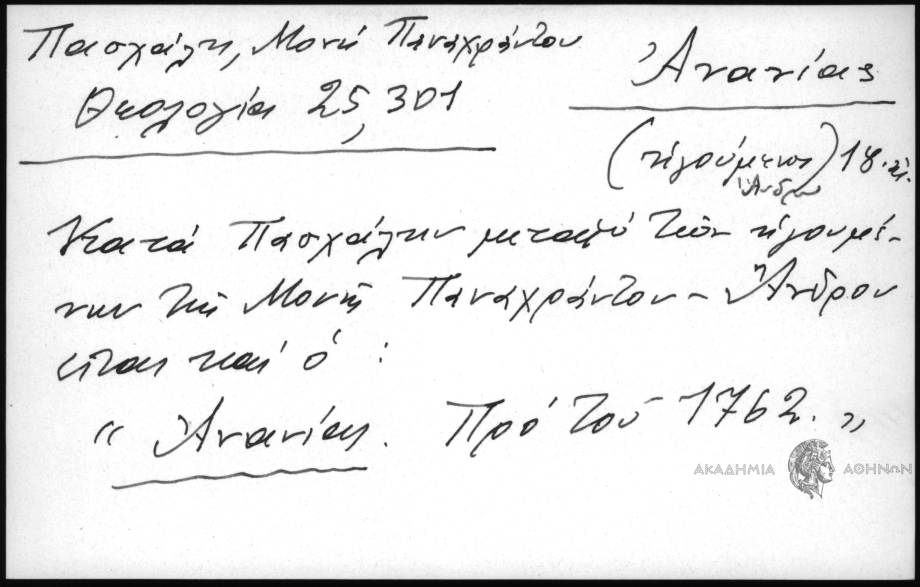 Πασχάλη, Μονή Παναχράντου
Θεολογία 25, 301
Ἀνανίας
(ἡγούμενος) 18. αἰ.
Ἄνδρου
Κατά Πασχάλην μεταξύ τῶν ἡγουμέ-
νων τῆς Μονῆς Παναχράντου - Ἄνδρου
εἶναι καί ὁ :
" Ἀνανίας. Πρό τοῦ 1762. "
ΑΚΑΔΗΜΙΑ ΑΘΗΝΩΝ